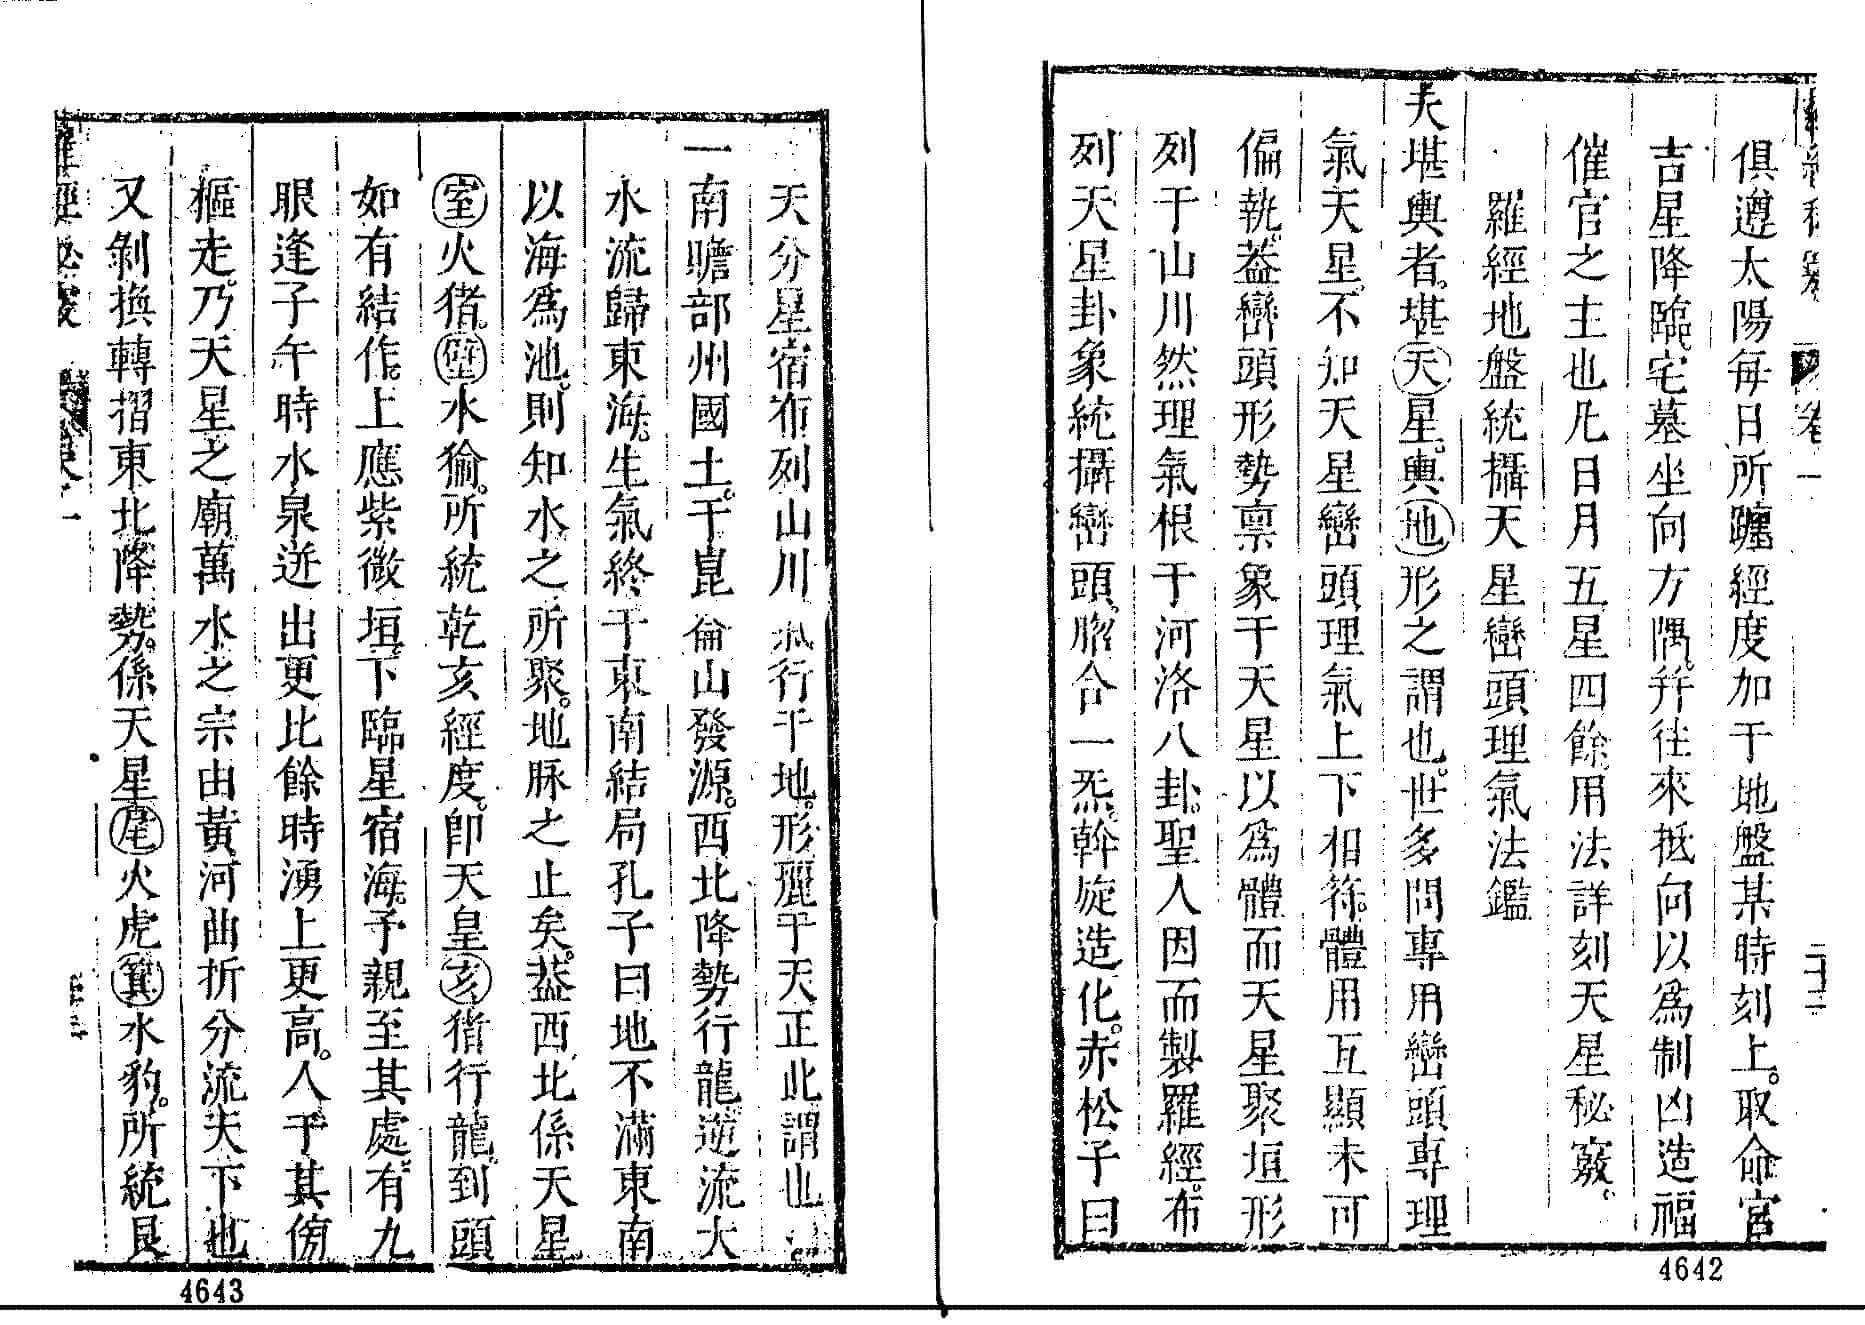 俱遵太陽每日所躔經度加于地盤某時刻上。取命宮
吉星降臨宅墓坐向方隅。幷往來抵向以爲制凶造福
催官之主也凡日月五星四餘用法詳刻天星秘竅。
羅經地盤統攝天星巒頭理氣法鑑
夫堪輿者。堪天星。輿地形之謂也。世多問專用巒頭專理
氣天星。不知天星巒頭理氣上下相符。體用互顯未可
偏執。葢巒頭形勢禀象于天星以爲體而天星聚垣形
列于山川然理氣根于河洛八卦。聖人因而製羅經。布
列天星卦象統攝巒頭。脗合一炁。斡旋造化。赤松子曰
4642
天分星宿布列山川氣行于地。形麗于天正此謂也
一南贍部州國土。于崑崙山發源。西北降勢行龍逆流大
水流歸東海。生氣終于東南結局孔子曰地不滿東南
以海爲池。則知水之所聚。地脉之止矣。葢西北係天星
室火猪。壁水㺄。所統乾亥經度。卽天皇亥猪行龍。到頭
如有結作。上應紫微垣。下臨星宿海。予親至其處。有九
眼逢子午時水泉迸出更比餘時湧上更高。人于其傍
樞走。乃天星之廟萬水之宗由黃河曲折分流天下也
又剝換轉摺東北降勢。係天星尾火虎箕水豹。所統艮
4643